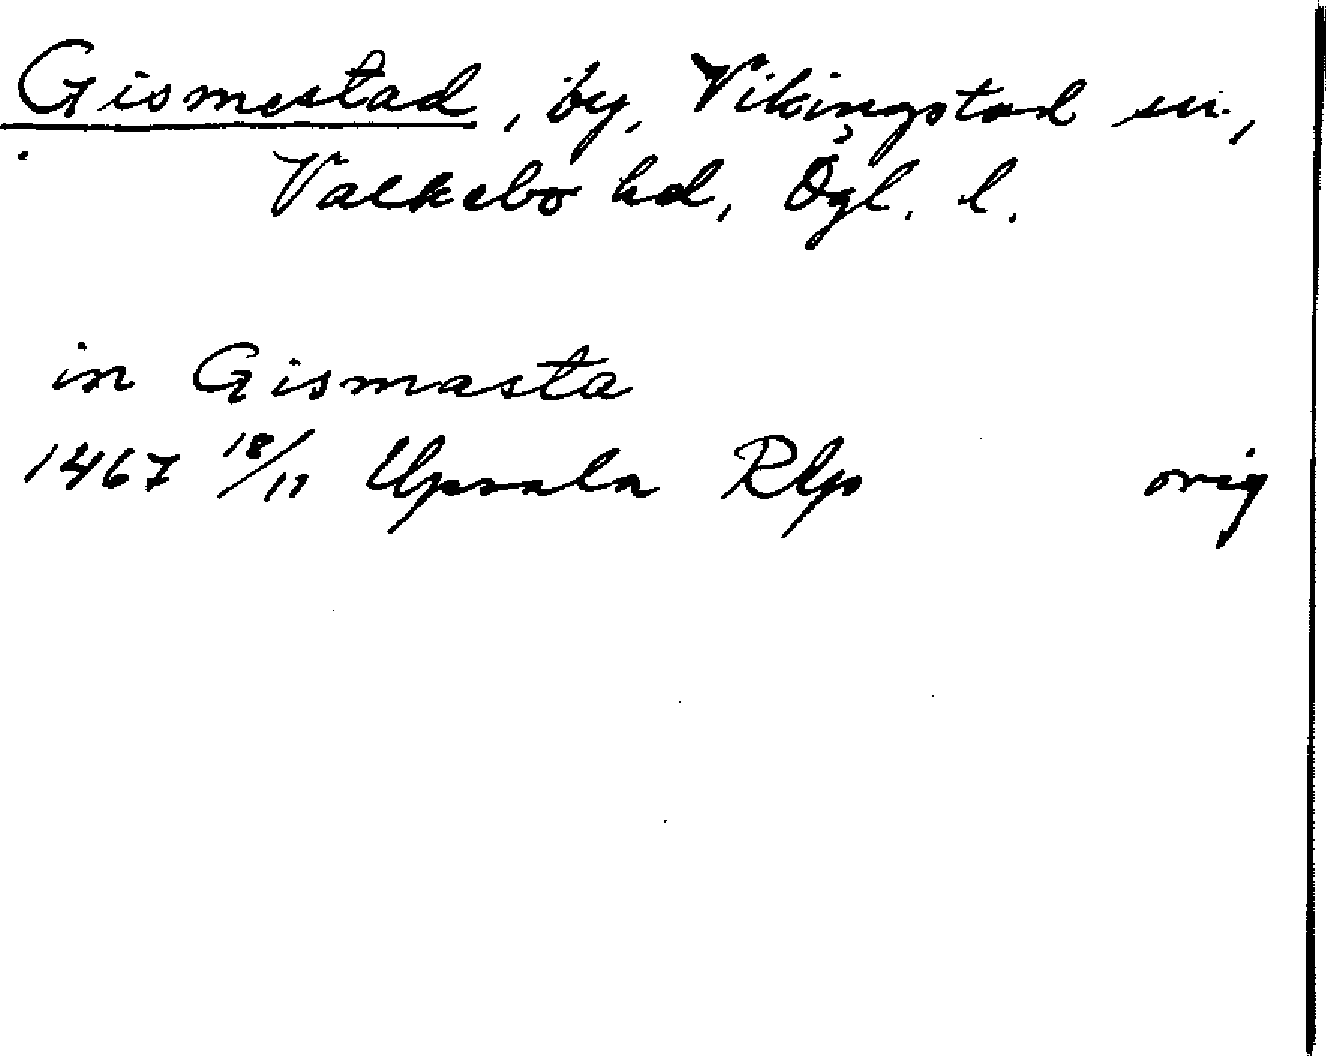 Gismestad, by, Vikingstad sn,
Valkebo hd, Ögl. l.
in Gismasta
1467 18/11 Upsala Rlp orig